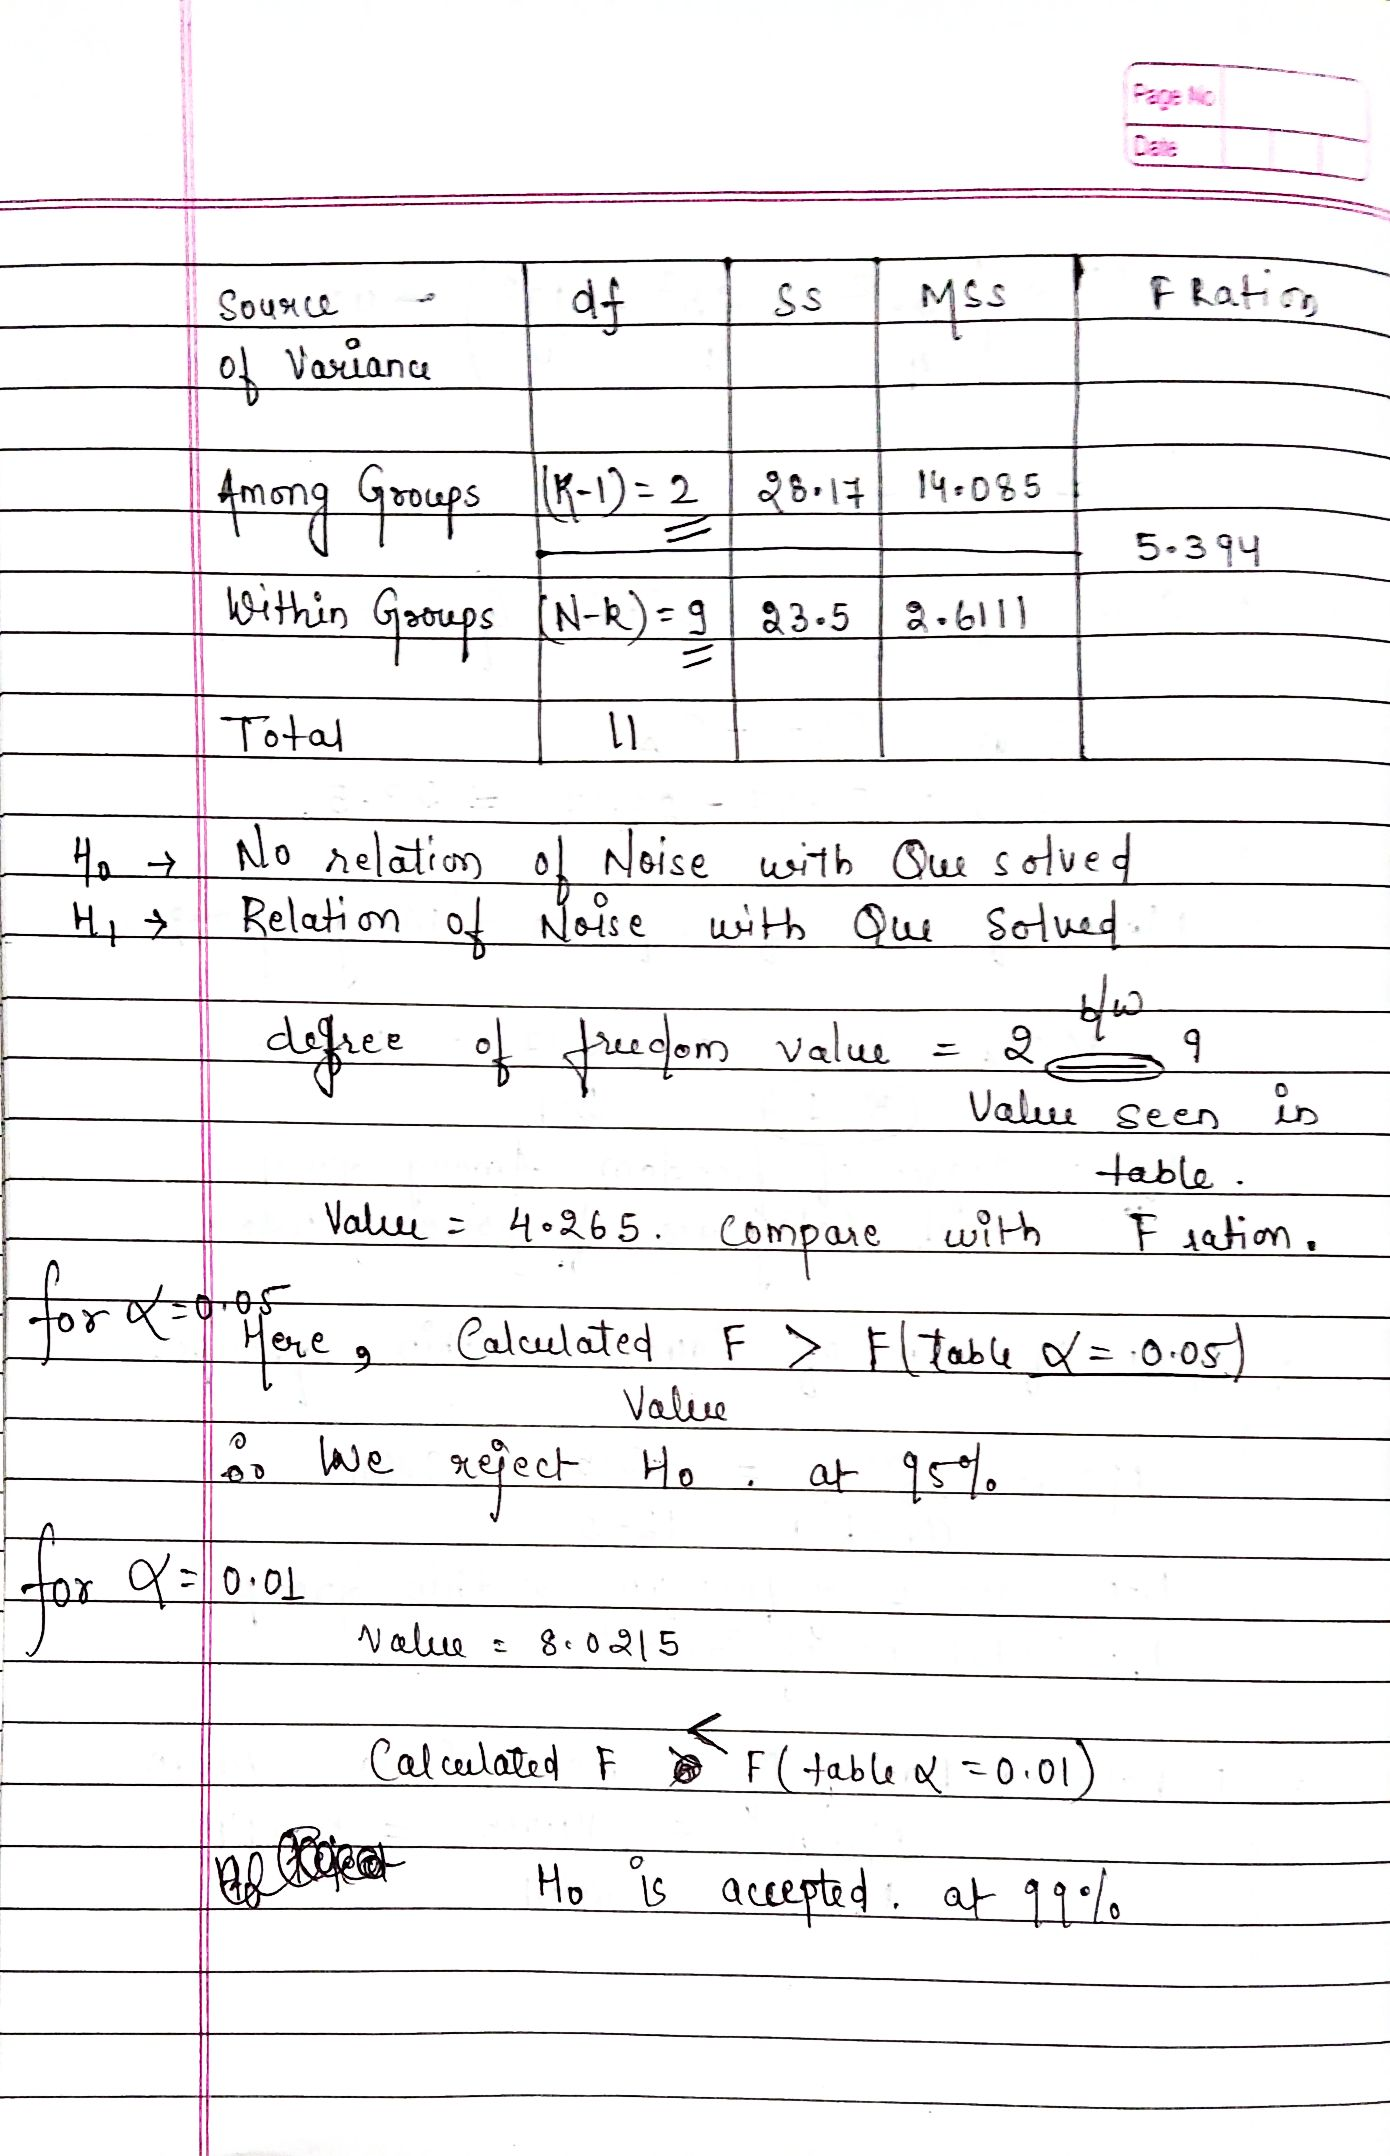 Page No
Date
Source df SS MSS F Ration
of Variance
Among Groups (K-1) = 2 28.17 14.085
5.394
Within Groups (N-k) = 9 23.5 2.6111
Total 11
H0 → No relation of Noise with Que solved
H1 → Relation of Noise with Que Solved.
b/w
degree of freedom value = 2 9
Value seen in
table.
Value = 4.265. Compare with F ration.
for α=0.05
Here, Calculated F > F(table α = 0.05)
Value
∴ We reject H0. at 95%
for α = 0.01
Value = 8.0215
<
Calculated F F(table α = 0.01)
H0 is accepted. at 99%